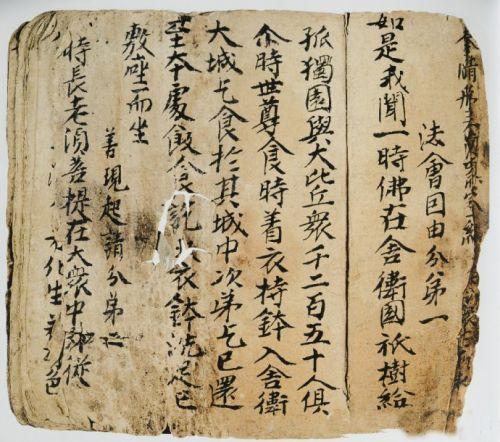 法會因由分第一
如是我聞一時佛在舍衛國祇樹給
孤獨園與大比丘衆千二百五十人俱
尒時世尊食時着衣持鉢入舍衛
大城乞食於其城中次第乞已還
至本處飯食訖衣鉢洗足已
敷座而坐
善現起請分第二
時長老須菩提在大衆中即從
化生色